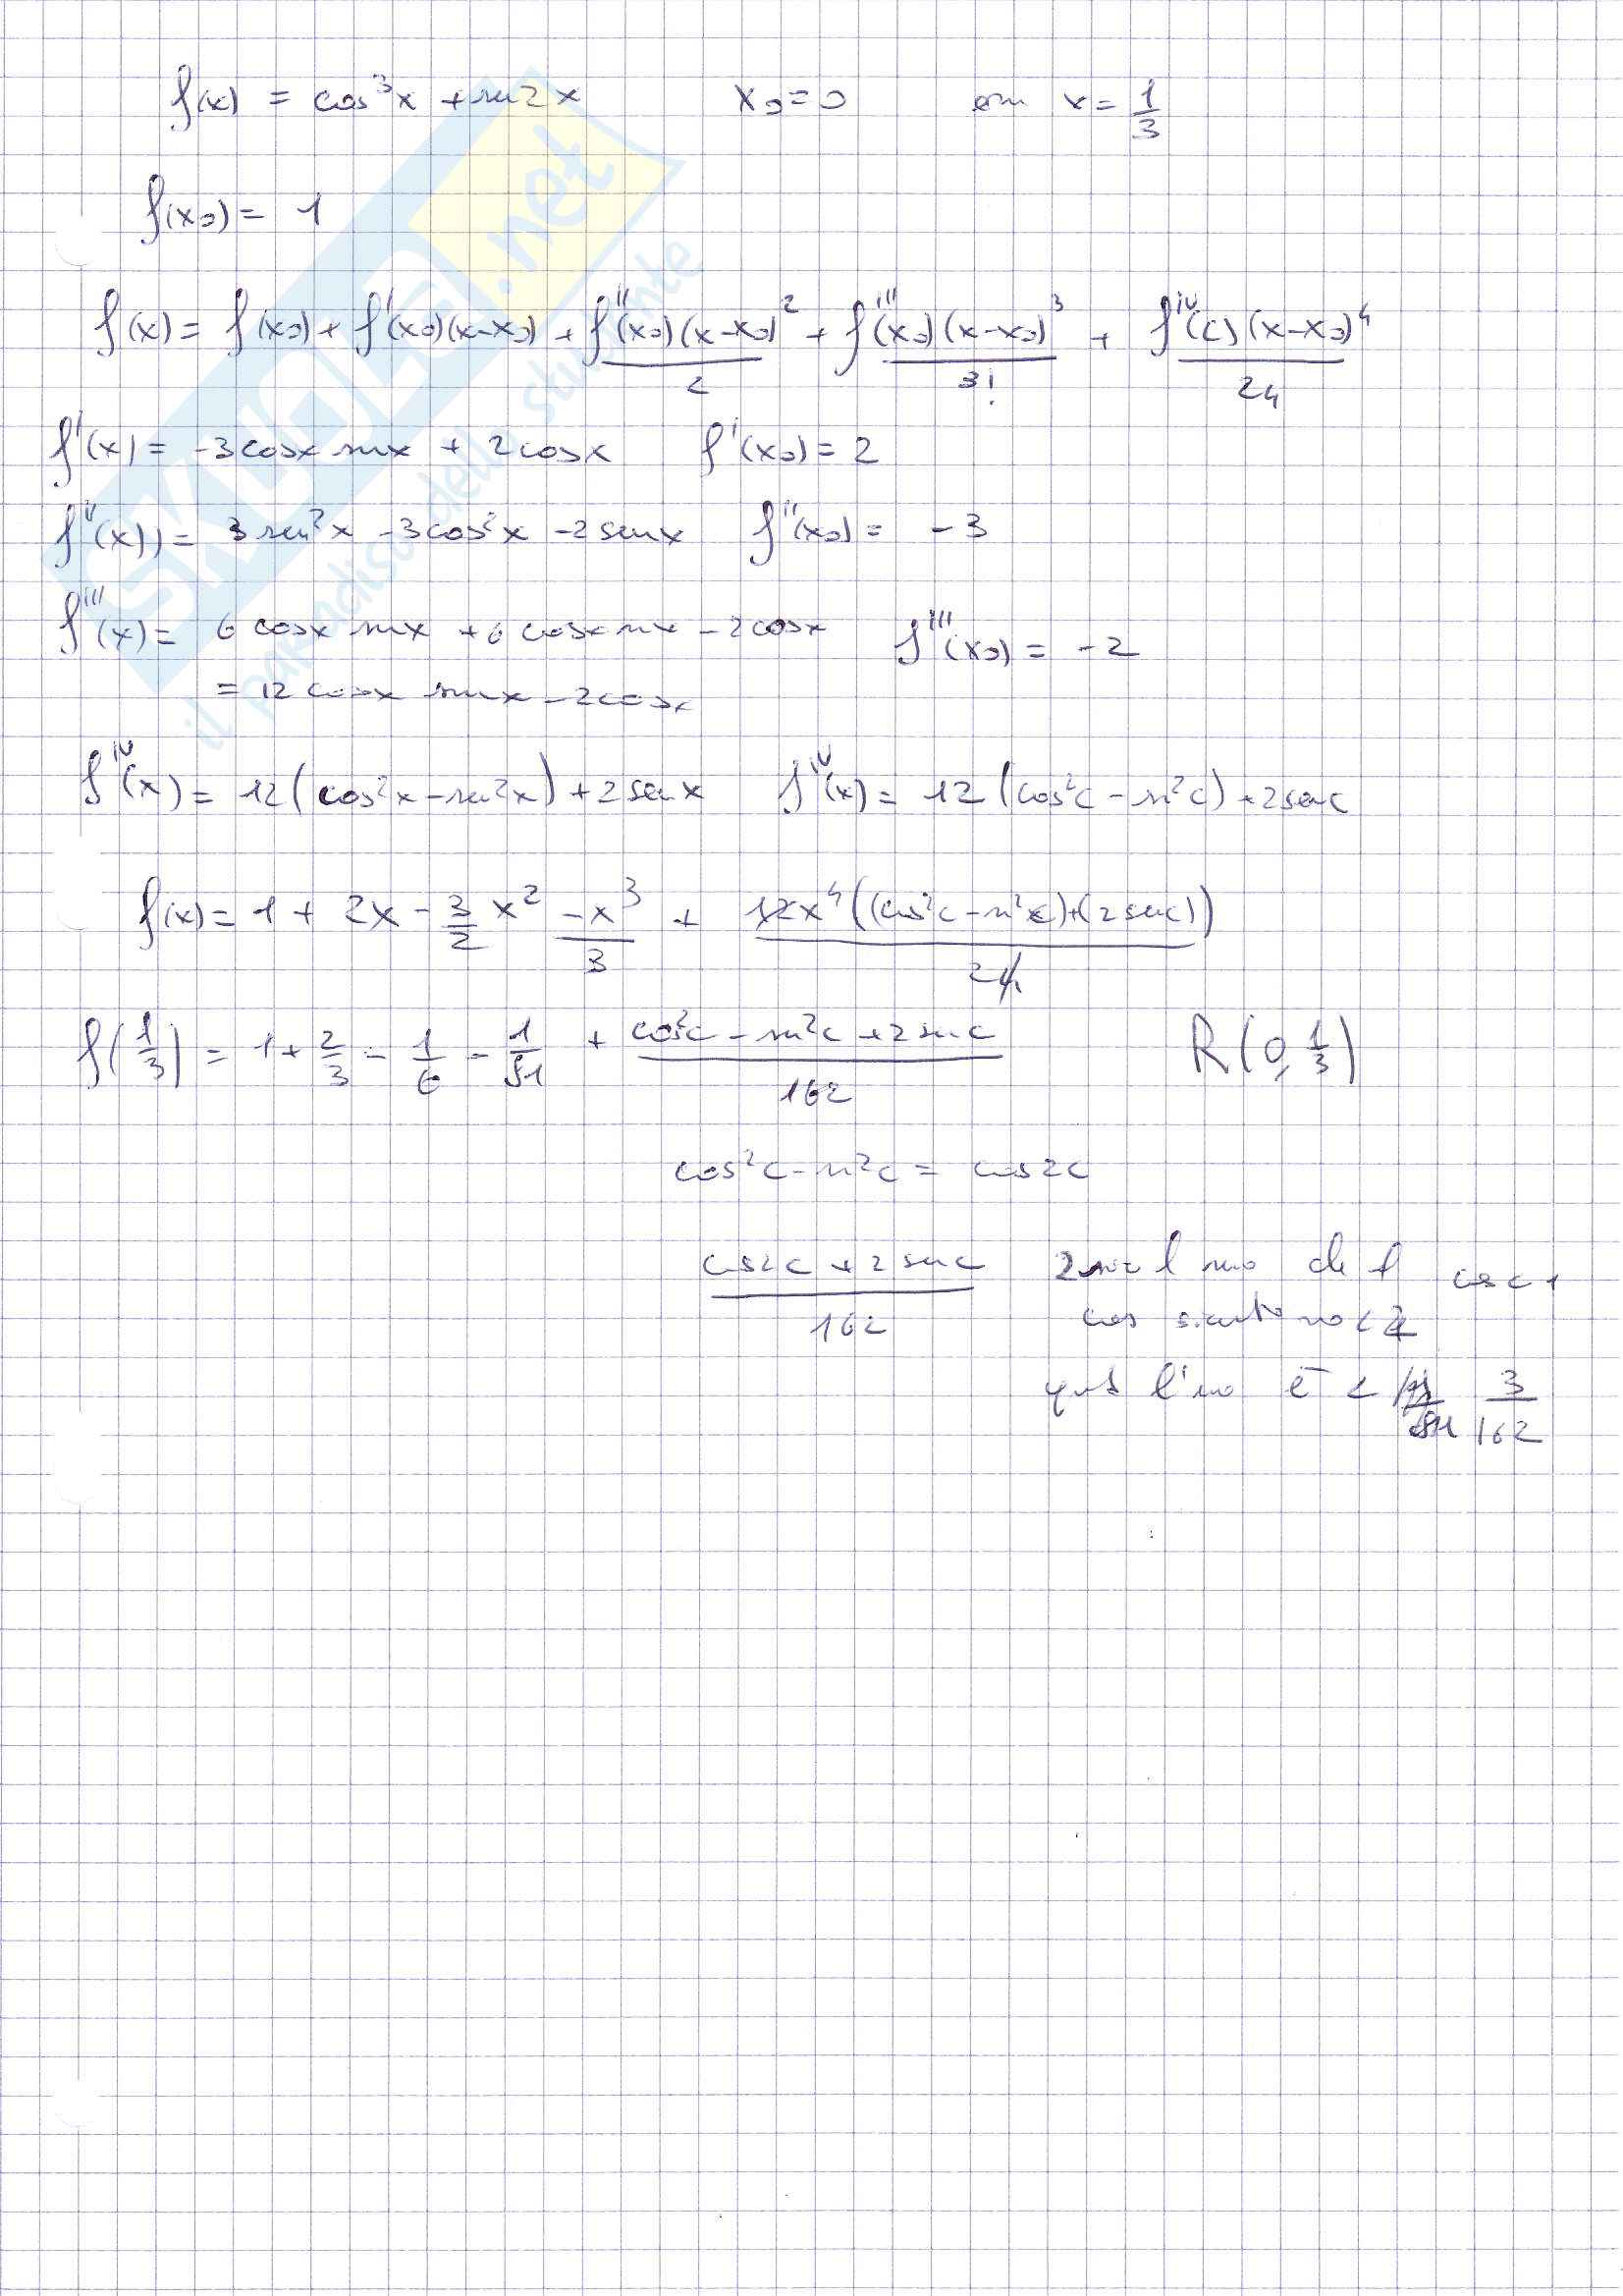 f(x) = cos³x + sen2x    x₀=0    con x = 1/3
f(x₀) = 1
f(x) = f(x₀) + f'(x₀)(x-x₀) + f''(x₀)(x-x₀)²/2 + f'''(x₀)(x-x₀)³/3! + f^IV(c)(x-x₀)⁴/24
f'(x) = -3cosx senx + 2cosx    f'(x₀) = 2
f''(x)) = 3sen²x - 3cos²x - 2senx    f''(x₀) = -3
f'''(x) = 6cosx senx + 6cosx senx - 2cosx    f'''(x₀) = -2
= 12cosx senx - 2cosx
f^IV(x) = 12(cos²x - sen²x) + 2senx    f^IV(x) = 12(cos²c - sen²c) + 2senc
f(x) = 1 + 2x - 3/2 x² -x³/3 + 12x⁴((cos²c - sen²c)+(2senc))/24
f(1/3) = 1 + 2/3 - 1/6 - 1/81 + cos²c - sen²c + 2senc/162    R(0, 1/3)
cos²c - sen²c = cos2c
cos2c + 2senc/162    2
è < 3/162
SKUOLA.net
il paradiso dello studente